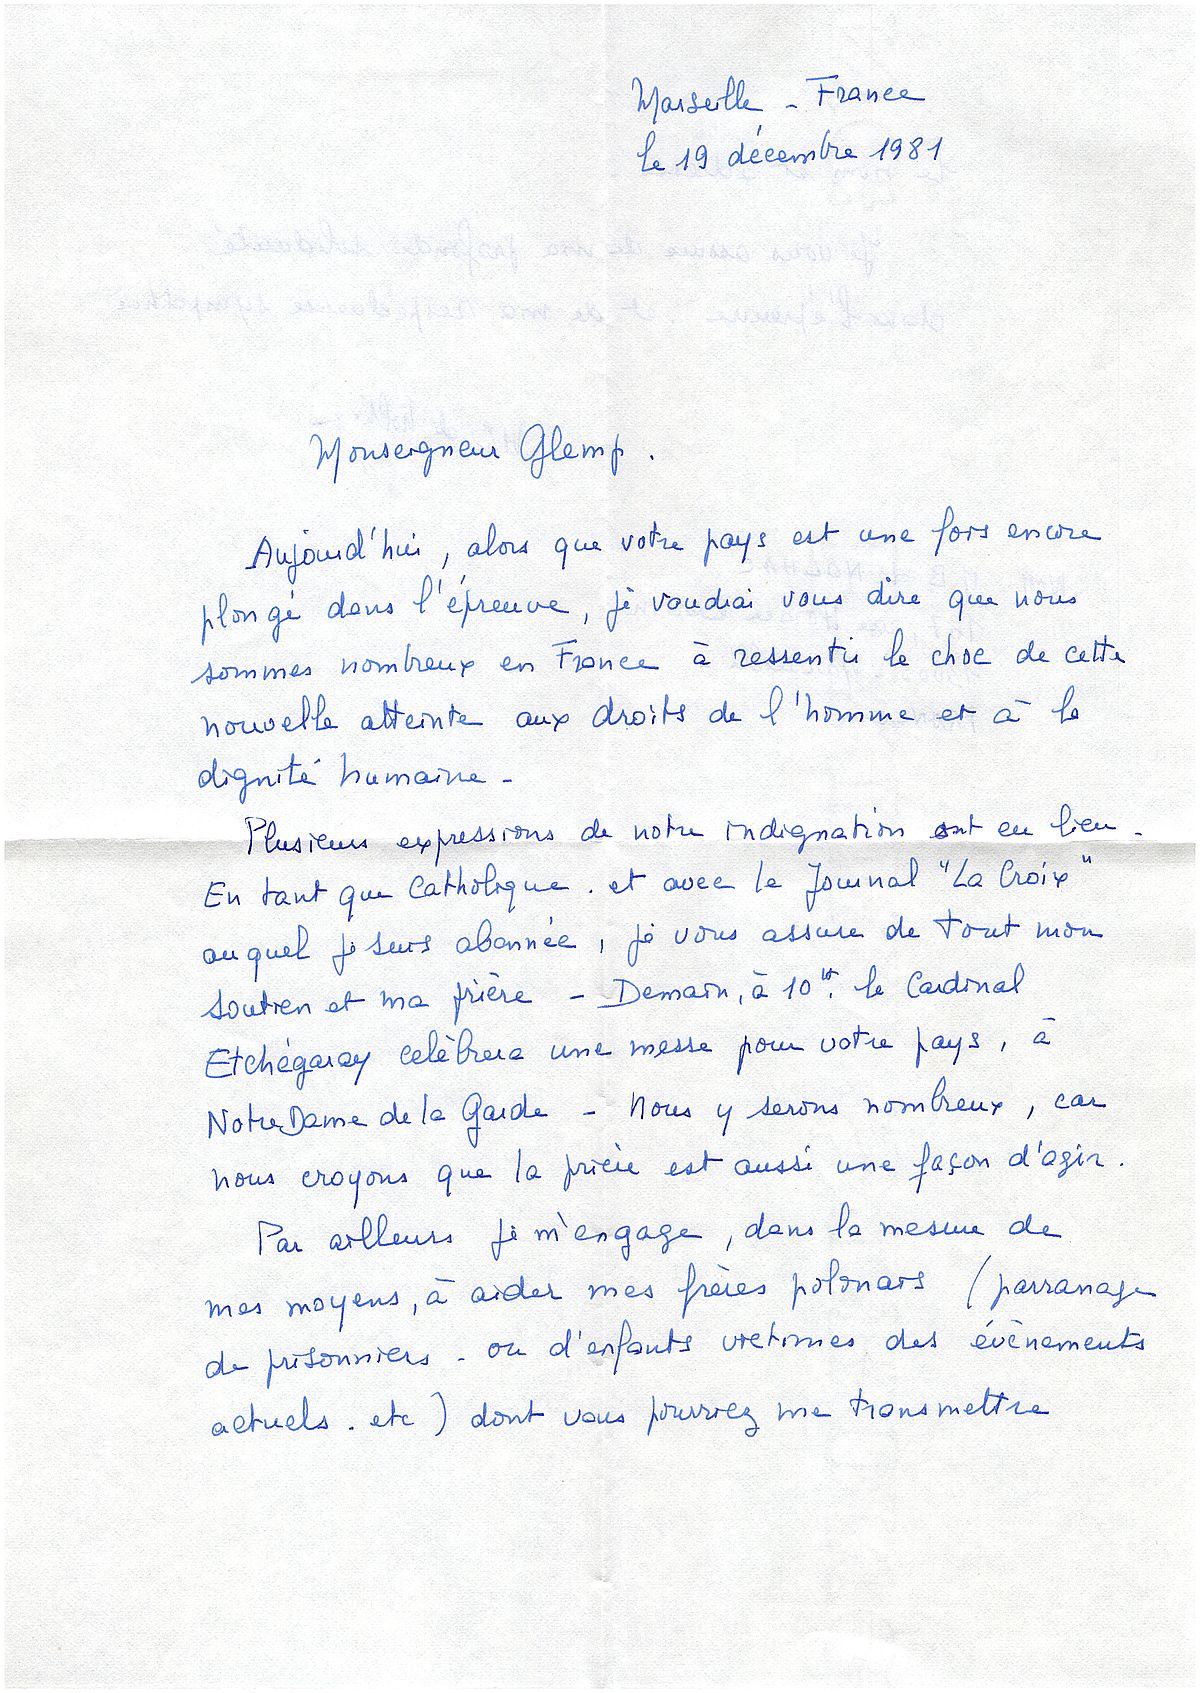 Marseille - France
le 19 décembre 1981
Monseigneur Glemp.
Aujourd'hui, alors que votre pays est une fois encore
plongé dans l'épreuve, je voudrai vous dire que nous
sommes nombreux en France à ressentir le choc de cette
nouvelle atteinte aux droits de l'homme et à la
dignité humaine -
Plusieurs expressions de notre indignation ont eu lieu -
En tant que Catholique. et avec le Journal "La Croix"
auquel je suis abonnée, je vous assure de tout mon
soutien et ma prière - Demain, à 10H. le Cardinal
Etchégaray celèbrera une messe pour votre pays, à
Notre Dame de la Garde - Nous y serons nombreux, car
nous croyons que la prière est aussi une façon d'agir.
Par ailleurs je m'engage, dans la mesure de
mes moyens, à aider mes frères polonais (parranage
de prisonniers - ou d'enfants victimes des évènements
actuels. etc) dont vous pourriez me transmettre